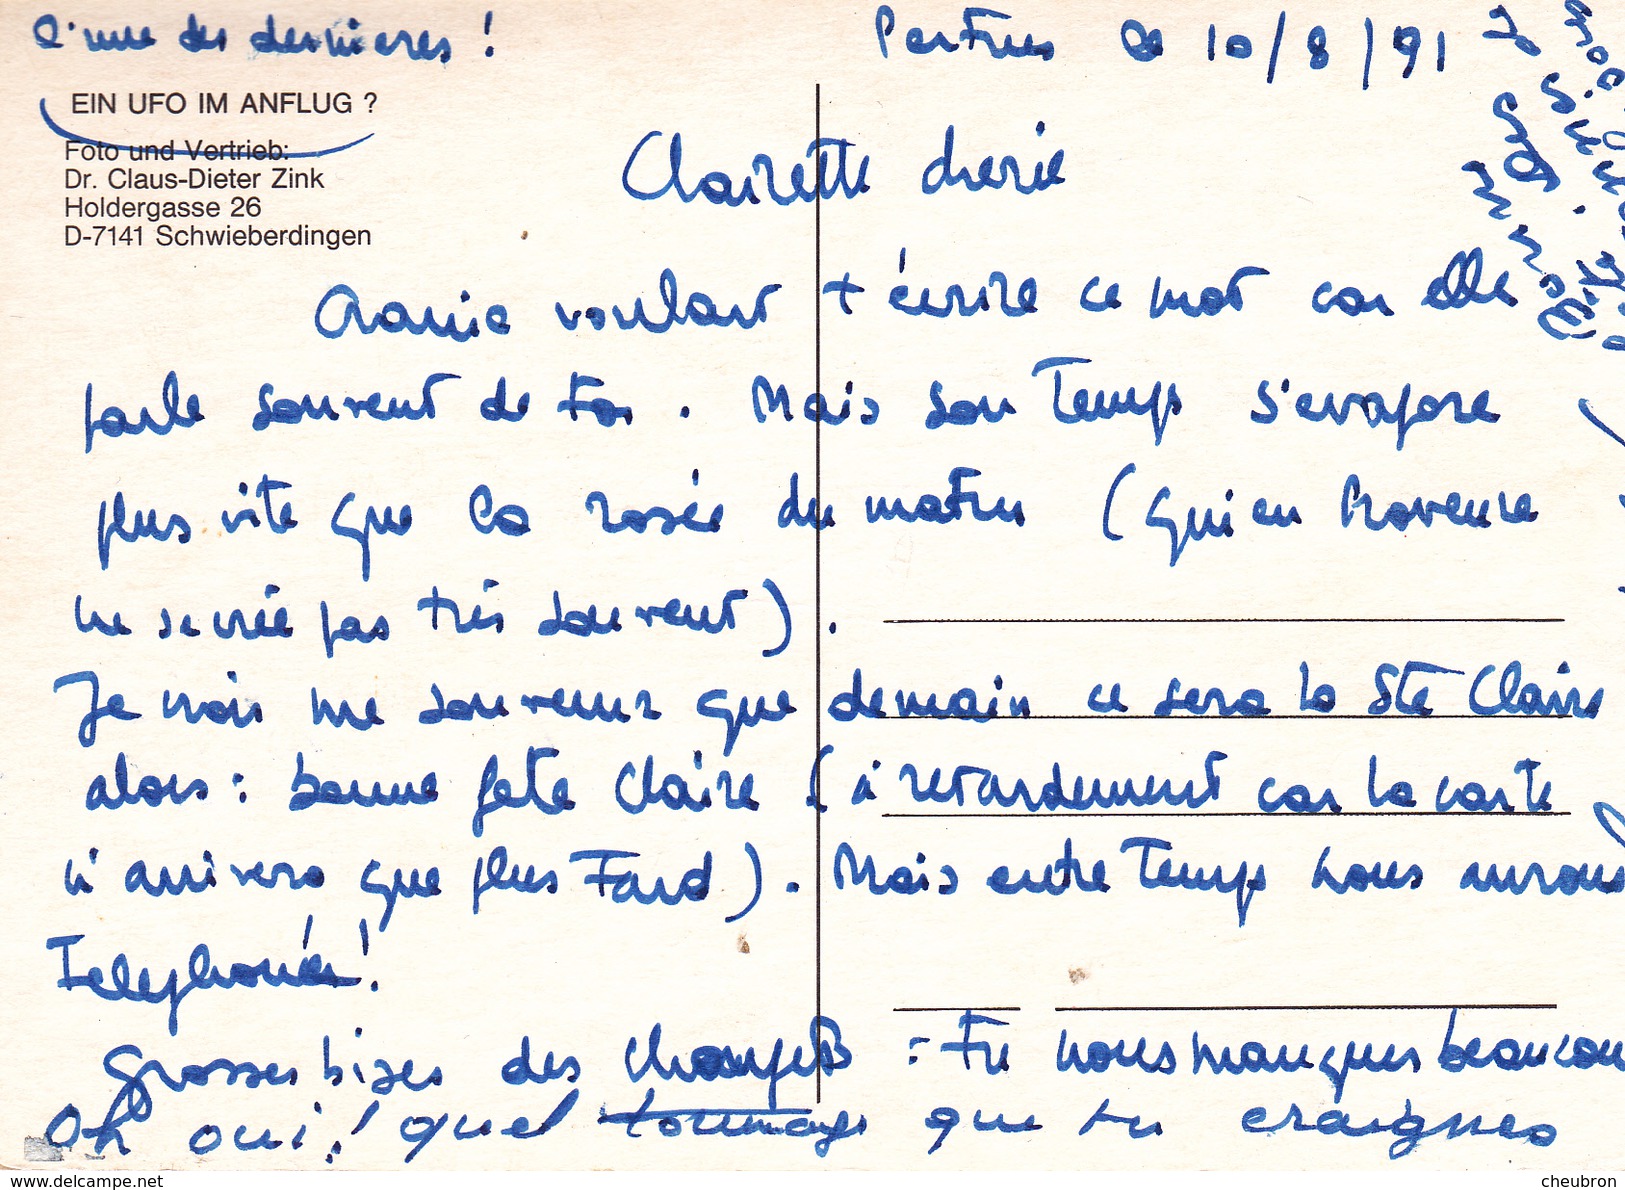 l'une des dernieres !
Pertuis le 10/8/91
EIN UFO IM ANFLUG ?
Foto und Vertrieb:
Dr. Claus-Dieter Zink
Holdergasse 26
D-7141 Schwieberdingen
Clairette cherie
voulant t'écrire ce mot car elle
parle souvent de toi. Mais son temps s'evapore
plus vite que la rosée du matin (qui en Provence
ne se crée pas très souvent).
Je crois me souvenir que demain ce sera la Ste Claire
alors : bonne fete Claire (à retardement car la carte
n'arrivera que plus tard). Mais entre temps nous aurons
telephoné !
Grosses bises des : tu nous manques beaucou
Oh oui ! quel que tu craignes
www.delcampe.net
cheubron